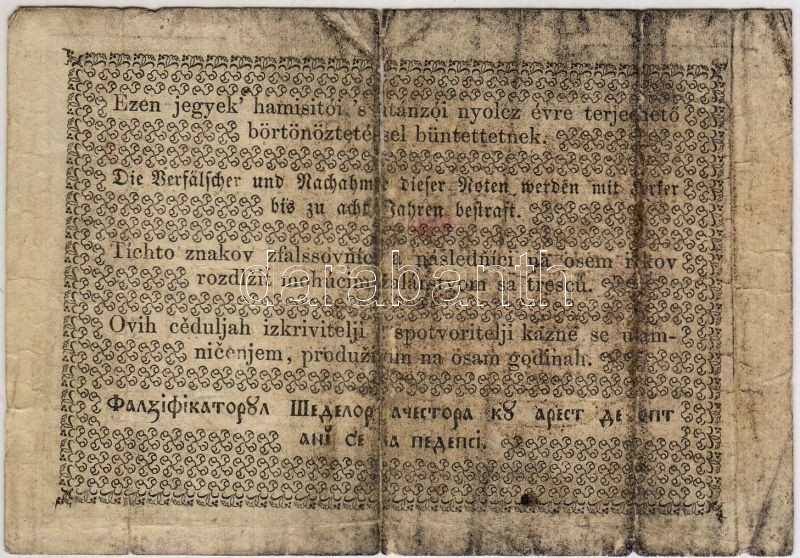 Ezen jegyek' hamisitói 's utánzói nyolcz évre terjedhető
börtönöztetéssel büntettetnek.
Die Verfälscher und Nachahmer dieser Noten werden mit Kerker
bis zu acht Jahren bestraft.
Tíchto znakov zfalssovníci následníci na osem rokov
rozdlžiť mohúcim žalárstvom sa trescú.
Ovih céduljah izkrivitelji spotvoritelji kazne se
ničenjem, produživim na osam godinah.
Фалꙁіфікаторꙋл Шеделор ачестора кꙋ арест де опт
анї се ва педепсі.
darabanth